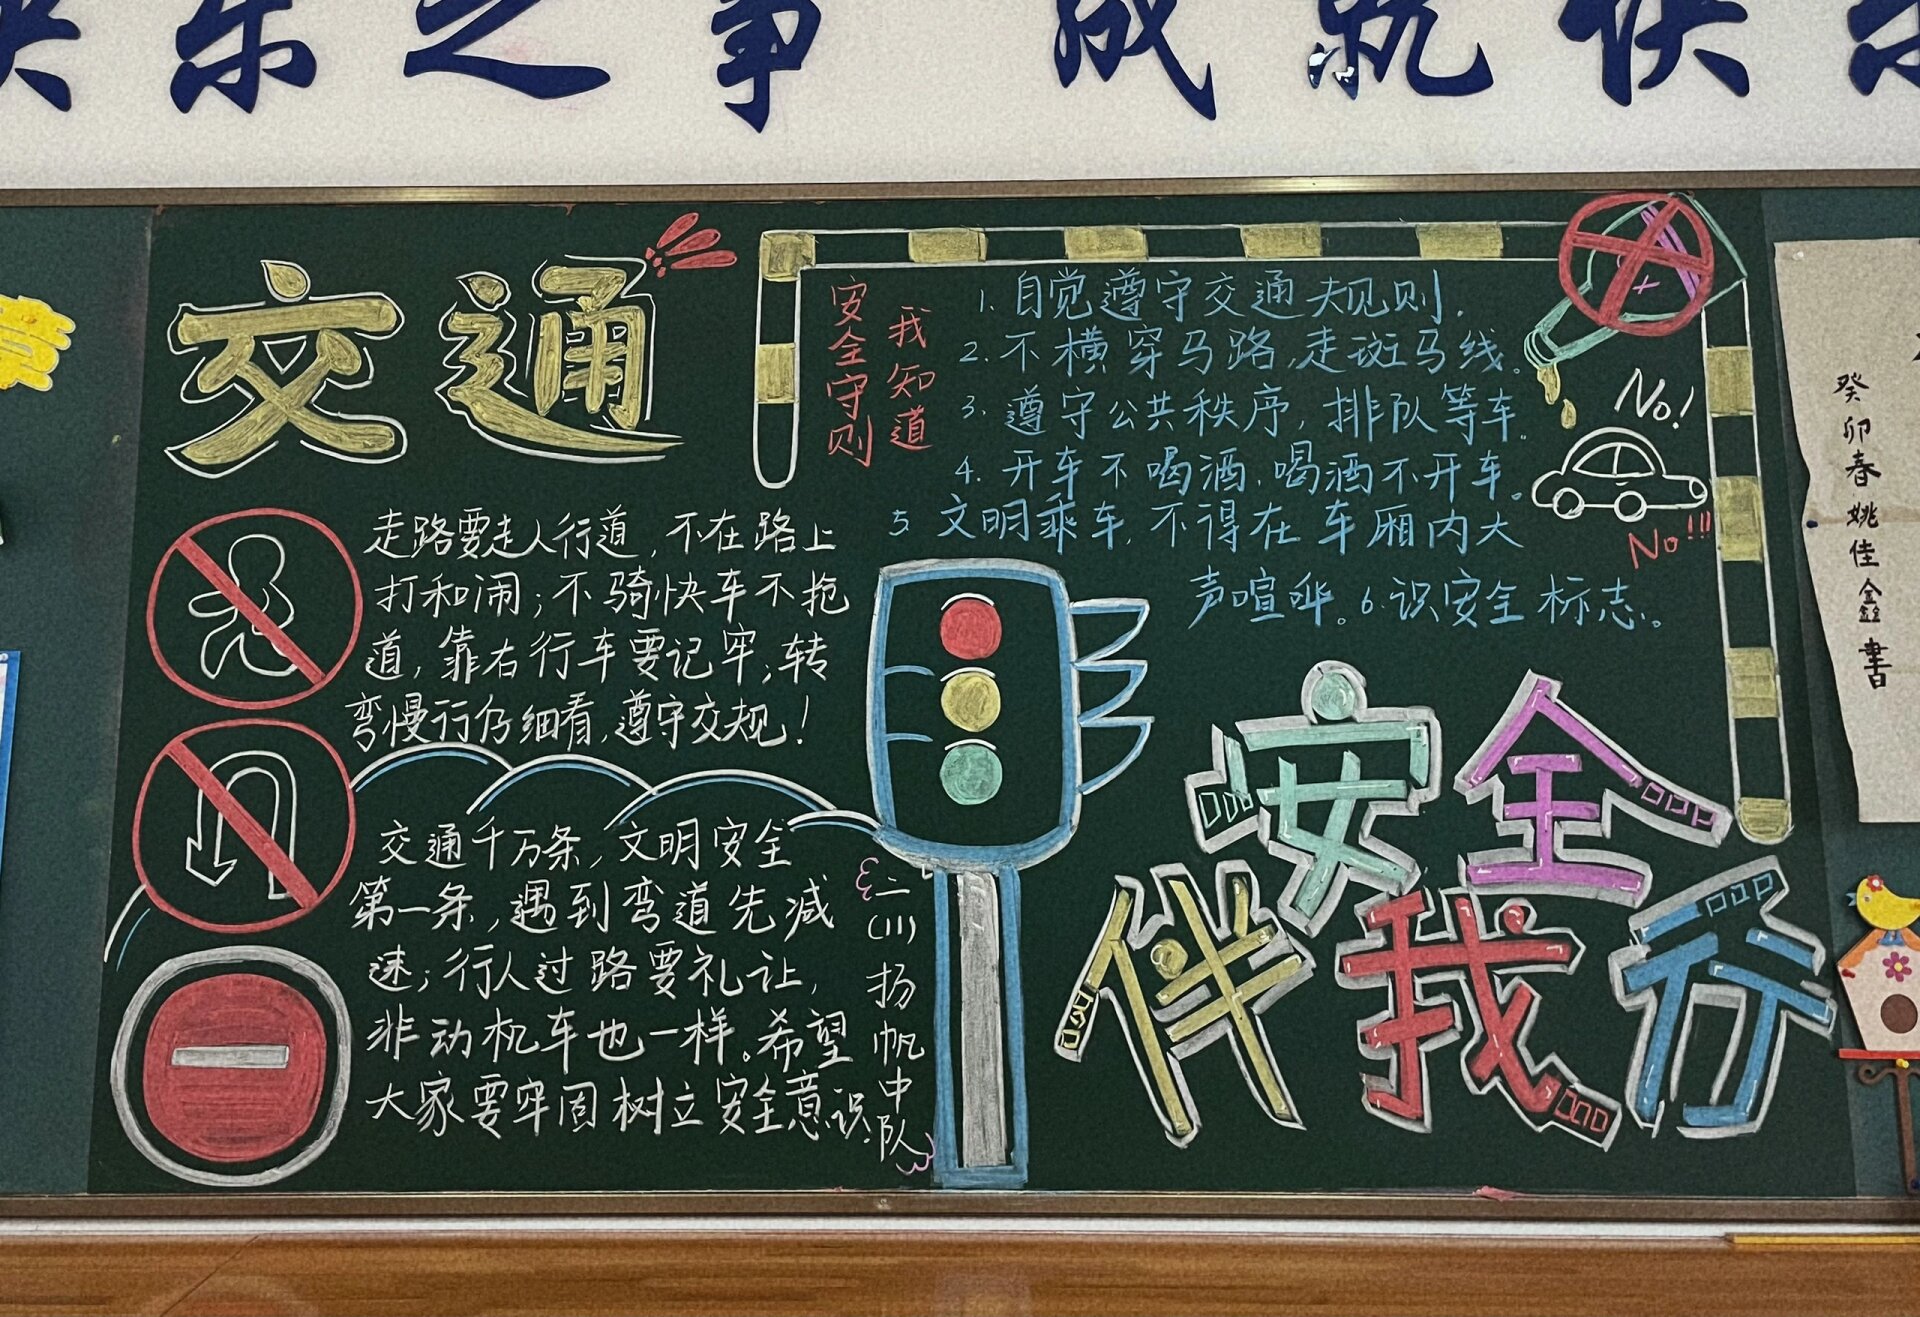 快乐之事 成就快乐
交通
走路要走人行道，不在路上
打和闹；不骑快车不抢
道，靠右行车要记牢；转
弯慢行仔细看，遵守交规！
交通千万条，文明安全
第一条，遇到弯道先减
速；行人过路要礼让，
非动机车也一样。希望
大家要牢固树立安全意识。
二(11)扬帆中队
我知道
安全守则
1. 自觉遵守交通规则.
2. 不横穿马路,走斑马线。
3. 遵守公共秩序，排队等车。
4. 开车不喝酒.喝酒不开车。
5 文明乘车.不得在车厢内大
声喧哗。6.识安全标志。
No!
No!!!
安全
伴我行
癸卯春姚佳鑫書